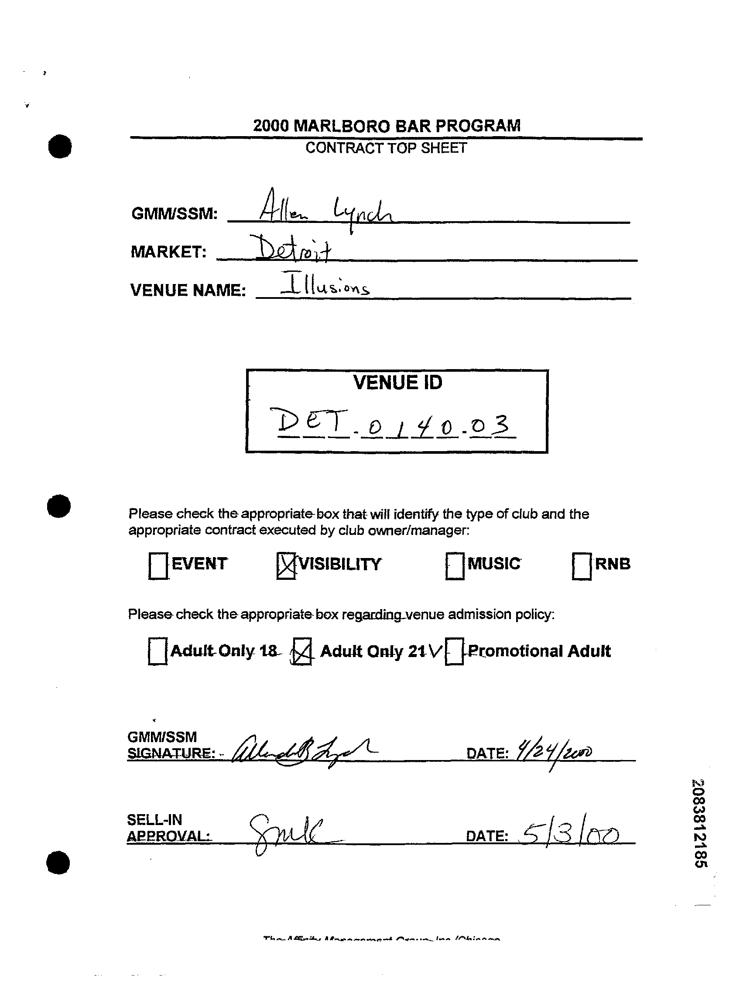 2000 MARLBORO BAR PROGRAM
CONTRACT TOP SHEET
GMM/SSM: Allen Lynch
MARKET: Detroit
VENUE NAME: Illusions
VENUE ID
DET.0140.03
Please check the appropriate box that will identify the type of club and the
appropriate contract executed by club owner/manager:
EVENT VISIBILITY MUSIC RNB
Please check the appropriate box regarding venue admission policy:
Adult Only 18 Adult Only 21 Promotional Adult
GMM/SSM
SIGNATURE: DATE: 4/24/2000
SELL-IN
APPROVAL: DATE: 5/3/00
2083812185
The Affinity Management Group, Inc./Chicago